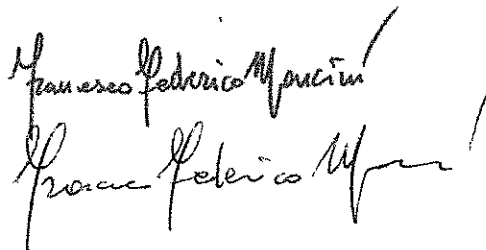 Francesco Federico Mancini
Federico